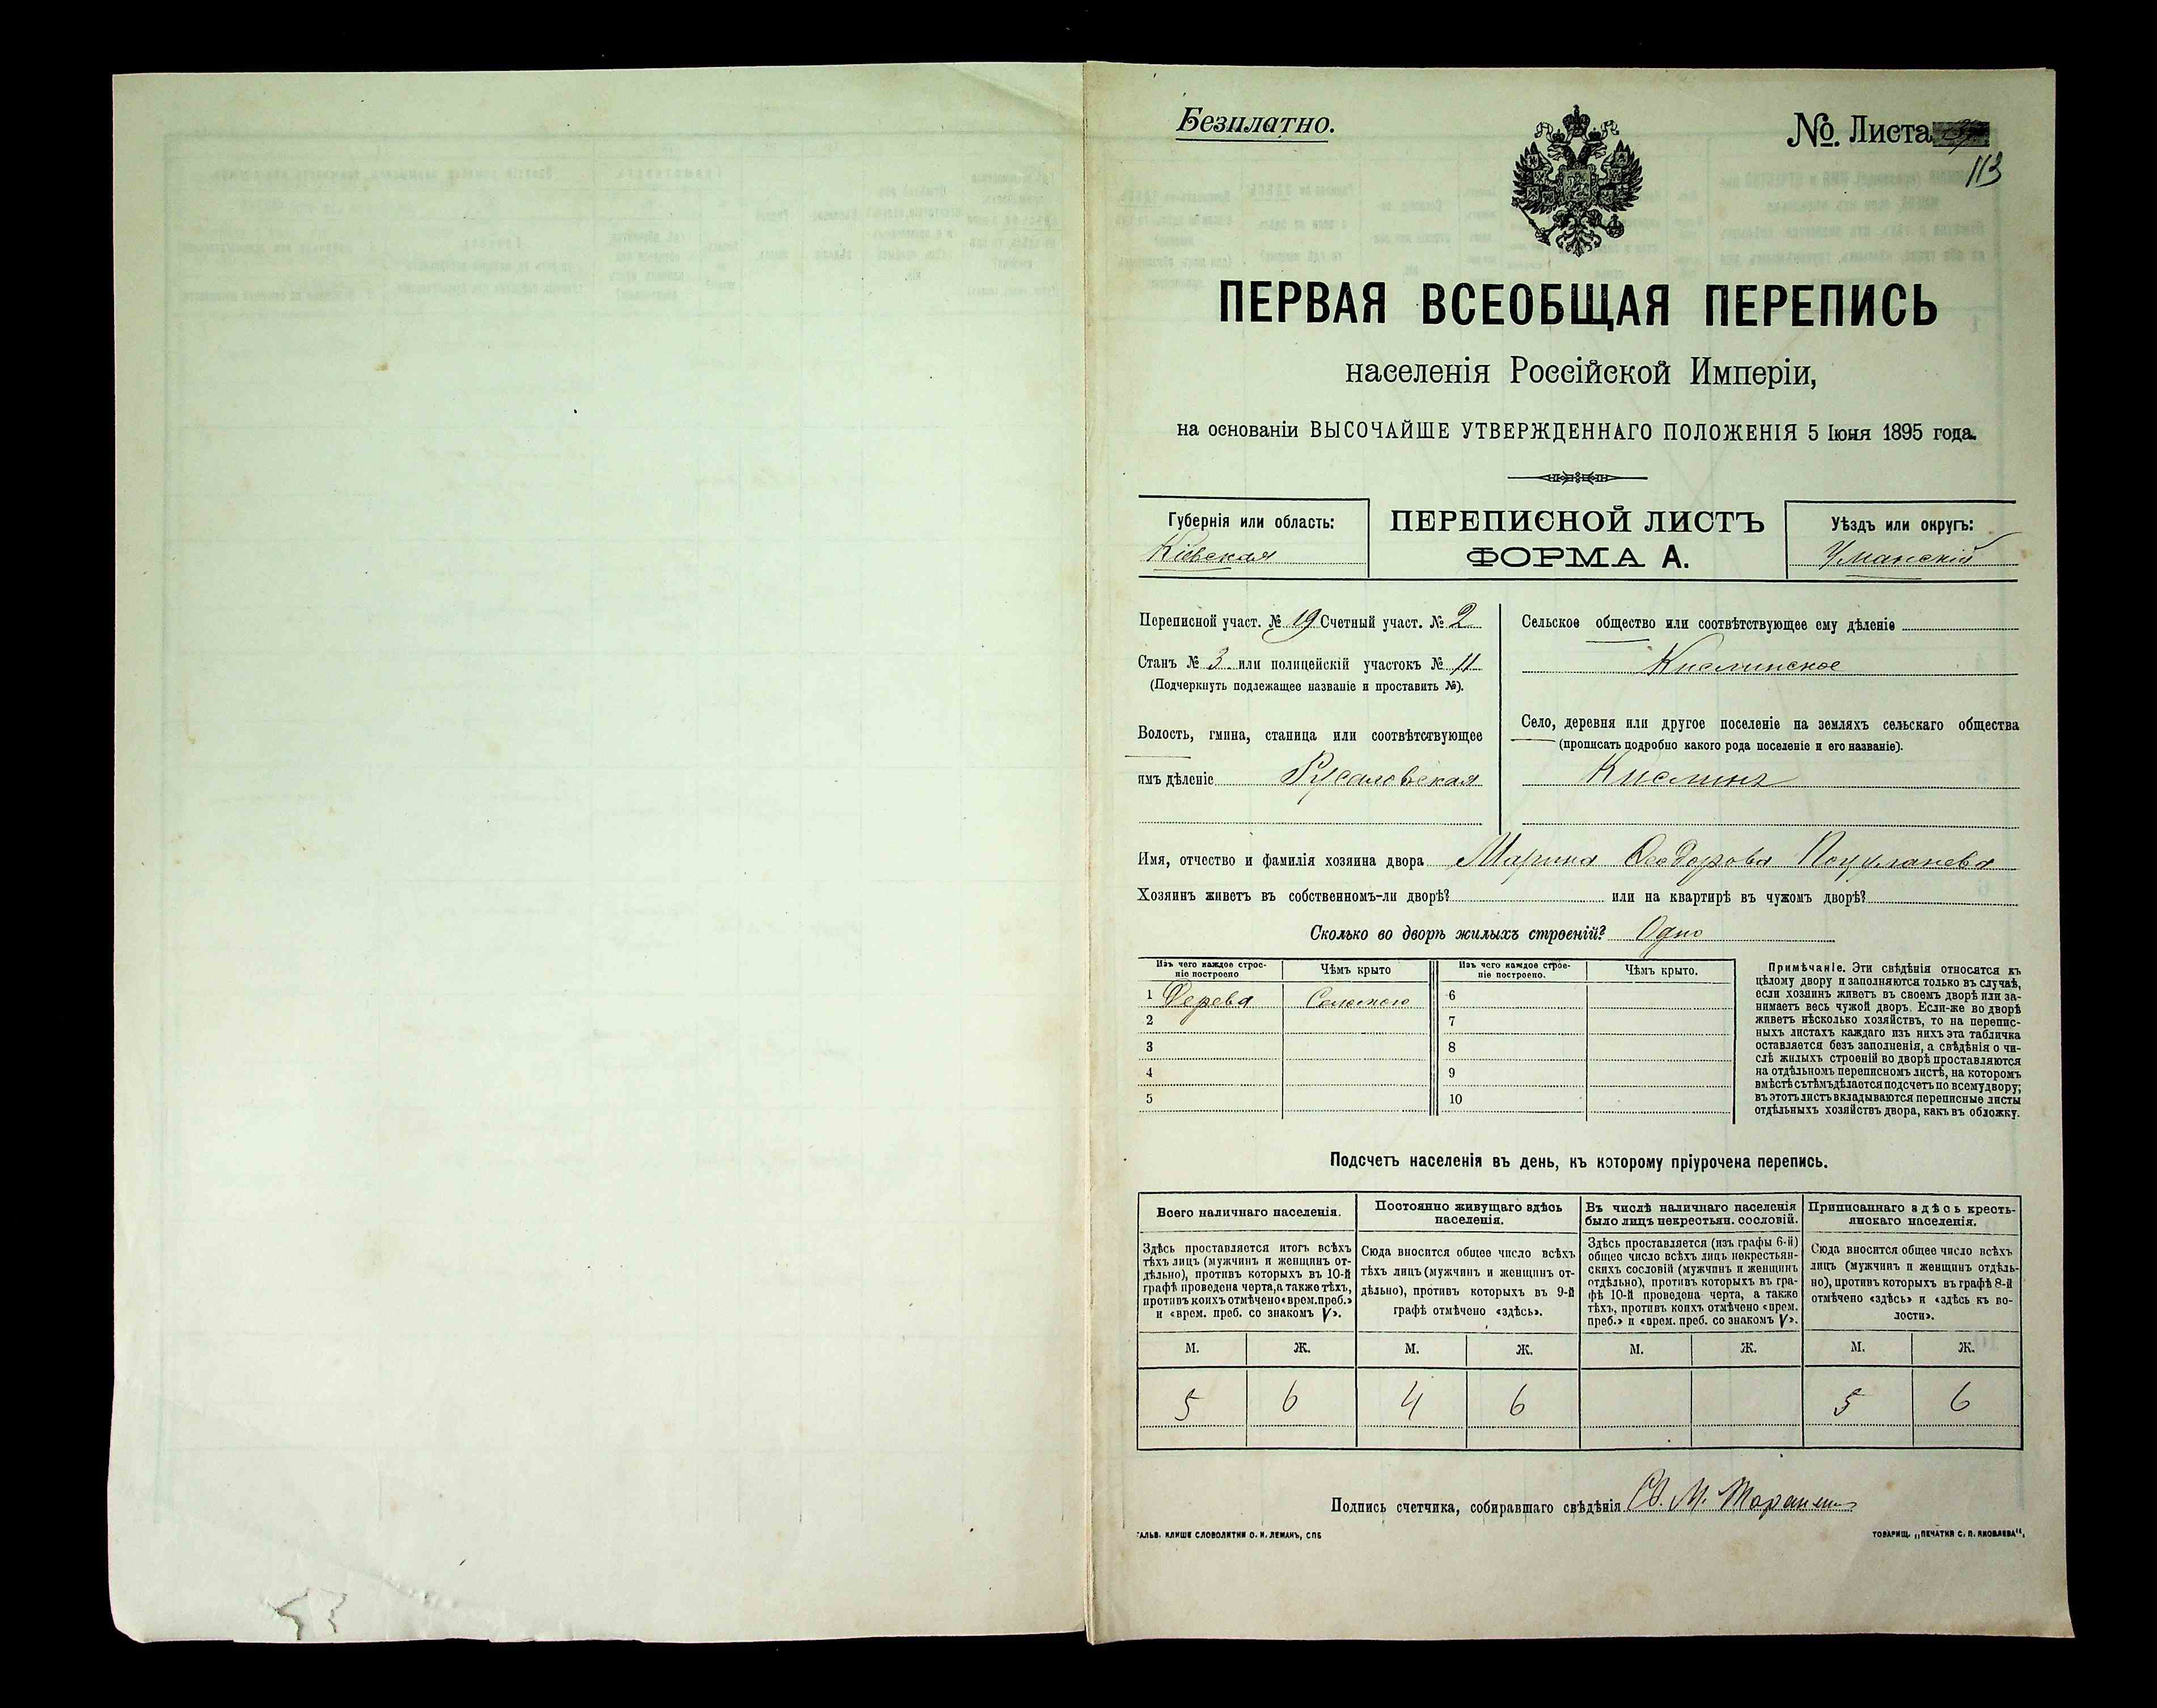 Безплатно.
№. Листа
113
ПЕРВАЯ ВСЕОБЩАЯ ПЕРЕПИСЬ
населенія Россійской Имперіи,
на основаніи ВЫСОЧАЙШЕ УТВЕРЖДЕННАГО ПОЛОЖЕНІЯ 5 Іюня 1895 года.
Губернія или область:
Кіевская
ПЕРЕПИСНОЙ ЛИСТЪ
ФОРМА А.
Уѣздъ или округъ:
Уманскій
Переписной участ. № 19 Счетный участ. № 2
Станъ № 3 или полицейскій участокъ № 11
(Подчеркнуть подлежащее названіе и проставить №).
Волость, гмина, станица или соотвѣтствующее
имъ дѣленіе Русаловская
Сельское общество или соотвѣтствующее ему дѣленіе
Кислинское
Село, деревня или другое поселеніе на земляхъ сельскаго общества
(прописать подробно какого рода поселеніе и его названіе).
Кислинъ
Имя, отчество и фамилія хозяина двора Марина Ѳеодорова
Хозяинъ живетъ въ собственномъ-ли дворѣ? или на квартирѣ въ чужомъ дворѣ?
Сколько во дворѣ жилыхъ строеній? Одно
Изъ чего каждое строе-
ніе построено
Чѣмъ крыто
Изъ чего каждое строе-
ніе построено.
Чѣмъ крыто.
1 Дерева Соломою 6
2 7
3 8
4 9
5 10
Примѣчаніе. Эти свѣдѣнія относятся къ
цѣлому двору и заполняются только въ случаѣ,
если хозяинъ живетъ въ своемъ дворѣ или за-
нимаетъ весь чужой дворъ. Если-же во дворѣ
живетъ нѣсколько хозяйствъ, то на перепис-
ныхъ листахъ каждаго изъ нихъ эта табличка
оставляется безъ заполненія, а свѣдѣнія о чи-
слѣ жилыхъ строеній во дворѣ проставляются
на отдѣльномъ переписномъ листѣ, на которомъ
вмѣстѣ съ тѣмъ дѣлается подсчетъ по всему двору;
въ этотъ листъ вкладываются переписные листы
отдѣльныхъ хозяйствъ двора, какъ въ обложку.
Подсчетъ населенія въ день, къ которому пріурочена перепись.
Всего наличнаго населенія.
Здѣсь проставляется итогъ всѣхъ
тѣхъ лицъ (мужчинъ и женщинъ от-
дѣльно), противъ которыхъ въ 10-й
графѣ проведена черта, а также тѣхъ,
противъ коихъ отмѣчено «врем. преб.»
и «врем. преб. со знакомъ V».
Постоянно живущаго здѣсь
населенія.
Сюда вносится общее число всѣхъ
тѣхъ лицъ (мужчинъ и женщинъ от-
дѣльно), противъ которыхъ въ 9-й
графѣ отмѣчено «здѣсь».
Въ числѣ наличнаго населенія
было лицъ некрестьян. сословій.
Здѣсь проставляется (изъ графы 6-й)
общее число всѣхъ лицъ некрестьян-
скихъ сословій (мужчинъ и женщинъ
отдѣльно), противъ которыхъ въ гра-
фѣ 10-й проведена черта, а также
тѣхъ, противъ коихъ отмѣчено «врем.
преб.» и «врем. преб. со знакомъ V».
Приписаннаго здѣсь кресть-
янскаго населенія.
Сюда вносится общее число всѣхъ
лицъ (мужчинъ и женщинъ отдѣль-
но), противъ которыхъ въ графѣ 8-й
отмѣчено «здѣсь» и «здѣсь къ во-
лости».
М. Ж. М. Ж. М. Ж. М. Ж.
5 6 4 6 5 6
Подпись счетчика, собиравшаго свѣдѣнія
ГАЛЬВ. КЛИШЕ СЛОВОЛИТНИ О. И. ЛЕМАНЪ, СПБ
ТОВАРИЩ. „ПЕЧАТНЯ С. П. ЯКОВЛЕВА“.